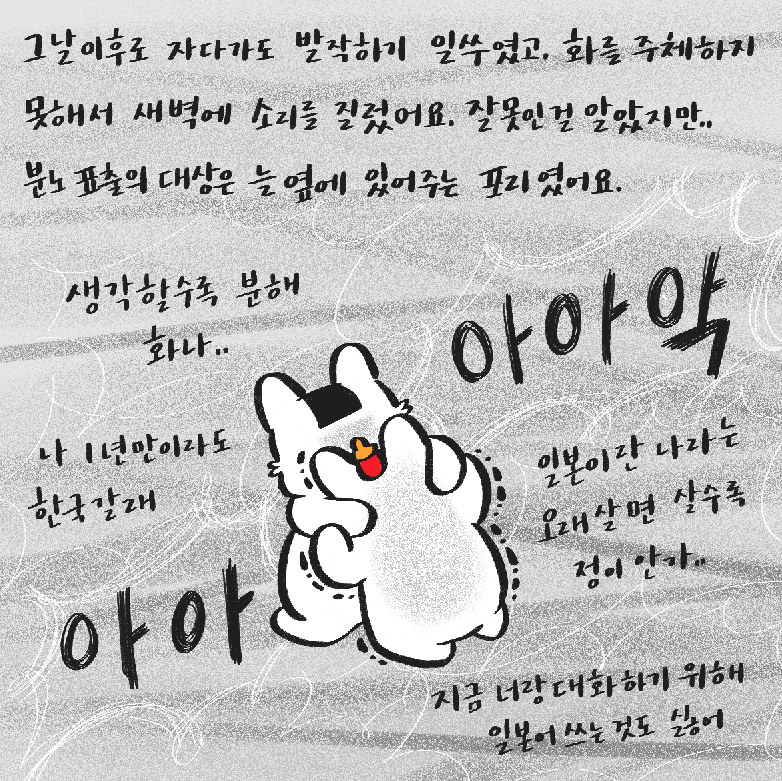 그날 이후로 자다가도 발작하기 일쑤였고, 화를 주체하지
못해서 새벽에 소리를 질렀어요. 잘못인 걸 알았지만..
분노 표출의 대상은 늘 옆에 있어주는 포리였어요.
생각할수록 분해
화나..
아아악
나 1년만이라도
한국 갈래
일본이란 나라는
오래 살면 살수록
정이 안가..
아아
지금 너랑 대화하기 위해
일본어 쓰는 것도 싫어